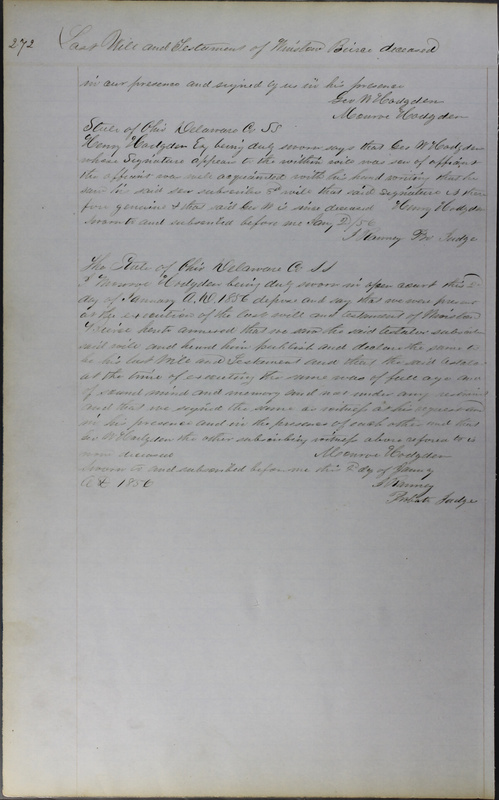 272
Last Will and Testament of Winslow Beirce deceased
in our presence and signed by us in his presence
Geo W Hodgden
Monroe Hodgden
State of Ohio Delaware Co SS
Henry Hodgden Esq being duly sworn says that Geo W Hodgden
whose Signature appears to the within will was son of affiant
the affiant was well acquainted with his hand writing that he
saw his said son subscribe sd will that said signature is there
fore genuine & that said Geo W is since deceased Henry Hodgden
Sworn to and subscribed before me Jany 2/56
Pro Judge
The State of Ohio Delaware Co SS
I Monroe Hodgden being duly sworn in open court this 2d
day of January A.D. 1856 depose and say that we were present
at the execution of the last will and testament of Winslow
Beirce hereto annexed that we saw the said testator subscribe
said will and heard him publish and declare the same to
be his last Will and Testament and that the said testator
at the time of executing the same was of full age and
of sound mind and memory and not under any restraint
and that we signed the same as witness at his request and
in his presence and in the presence of each other and that
Geo W Hodgden the other subscribing witness above refered to is
now deceased Monroe Hodgden
Sworn to and subscribed before me this 2d day of January
A D 1856
Probate Judge